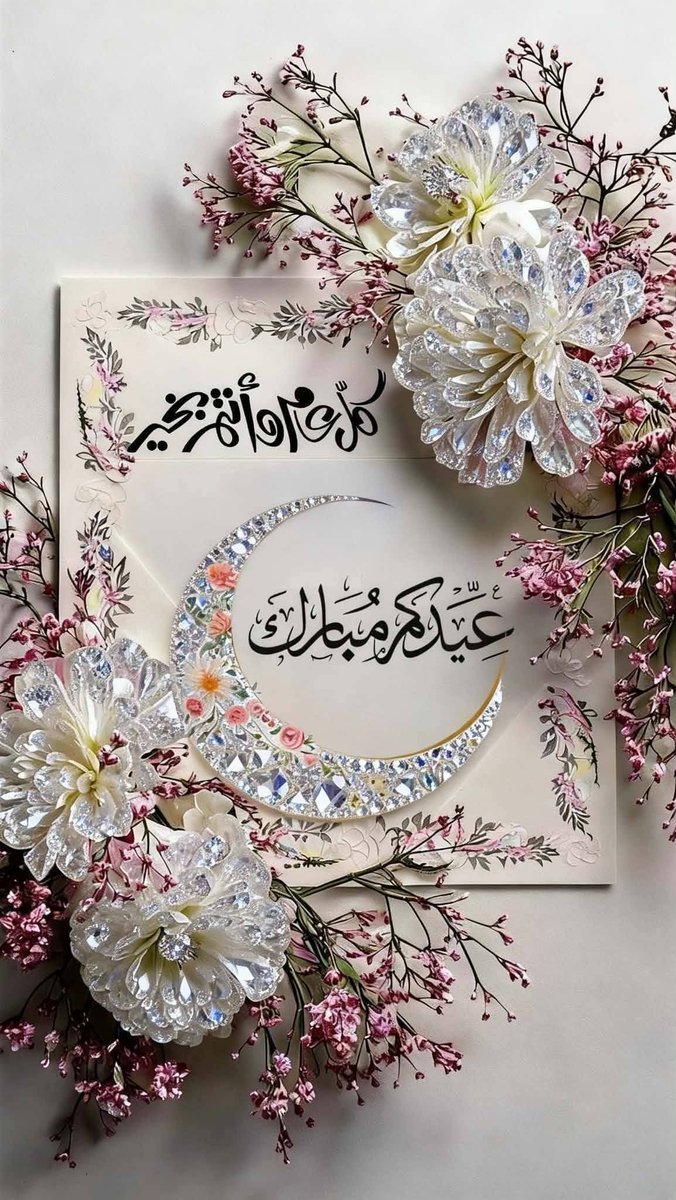 كلّ عام وأنتم بخير
عيّدكم مُبارك